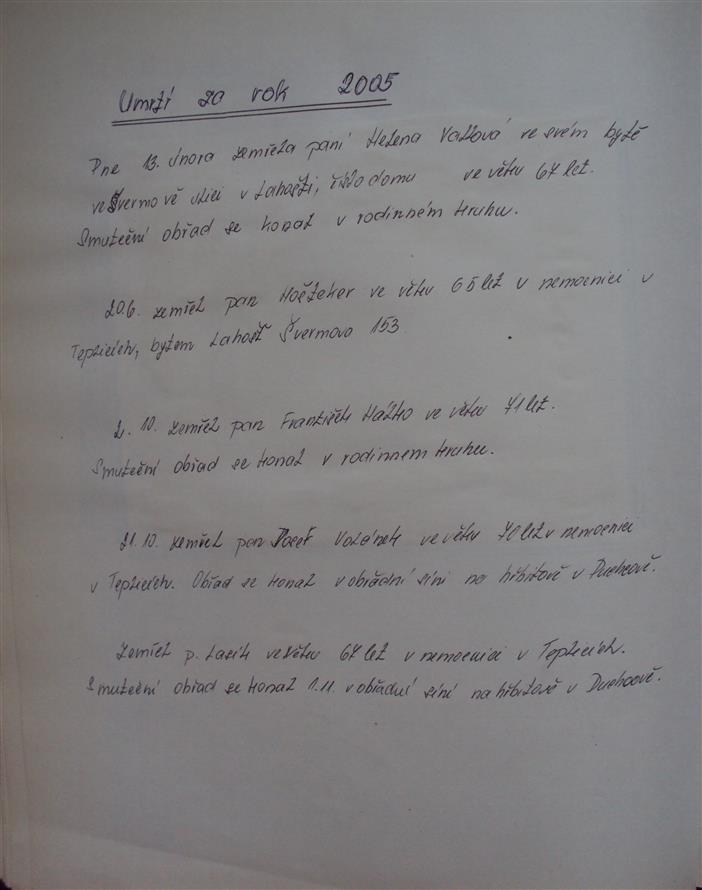 Umrtí za rok 2005
Dne 13. února zemřela paní Helena ve svém bytě
ve Švermově ulici v Lahošti, číslo domu ve věku 67 let.
Smuteční obřad se konal v rodinném kruhu.
20.6. zemřel pan ve věku 65 let v nemocnici v
Teplicích, bytem Lahošť Švermova 153
2. 10. zemřel pan František ve věku 71 let.
Smuteční obřad se konal v rodinnem kruhu.
21.10. zemřel pan Josef Volánek ve věku 70 let v nemocnici
v Teplicích. Obřad se konal v obřadní síni na hřbitově v Duchcově.
Zemřel p. Lasík ve věku 67 let v nemocnici v Teplicích.
Smuteční obřad se konal 1.11. v obřadní síni na hřbitově v Duchcově.